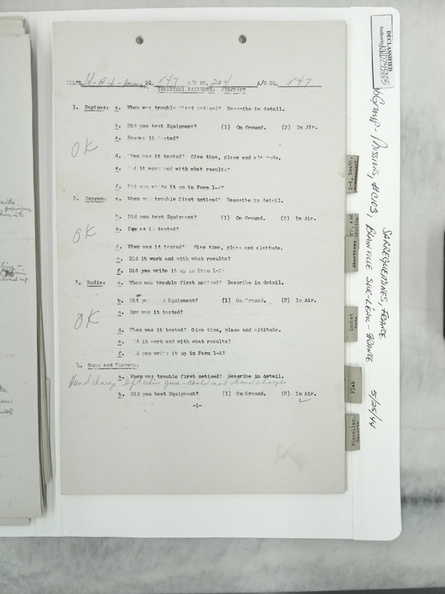 DECLASSIFIED
Authority
PILOT SQ. 547 A/C NO. 204 A/C SQ. 547
TECHNICAL FAILURE:
1. Engines: a. When was trouble first noticed? Describe in detail.
b. Did you test Equipment? (1) On Ground. (2) In Air.
c. How was it tested?
OK
d. When was it tested? Give time, place and altitude.
e. Did it work and with what results?
f. Did you write it up in Form 1-A?
2. Oxygen: a. When was trouble first noticed? Describe in detail.
b. Did you test Equipment? (1) On Ground. (2) In Air.
OK
c. How was it tested?
d. When was it tested? Give time, place and altitude.
e. Did it work and with what results?
f. Did you write it up in Form 1-A?
3. Radios: a. When was trouble first noticed? Describe in detail.
b. Did you test Equipment? (1) On Ground. (2) In Air.
c. How was it tested?
OK
d. When was it tested? Give time, place and altitude.
e. Did it work and with what results?
f. Did you write it up in Form 1-A?
4. Guns and Turrets:
a. When was trouble first noticed? Describe in detail.
Hand charge left chin gun - could not hand charge
b. Did you test Equipment? (1) On Ground. (2) In Air.
-1-
Group - Missions, #103, BLAINVILLE SUR-L'EAU - FRANCE
SARREGUEMINES, FRANCE
5/25/44
Flak